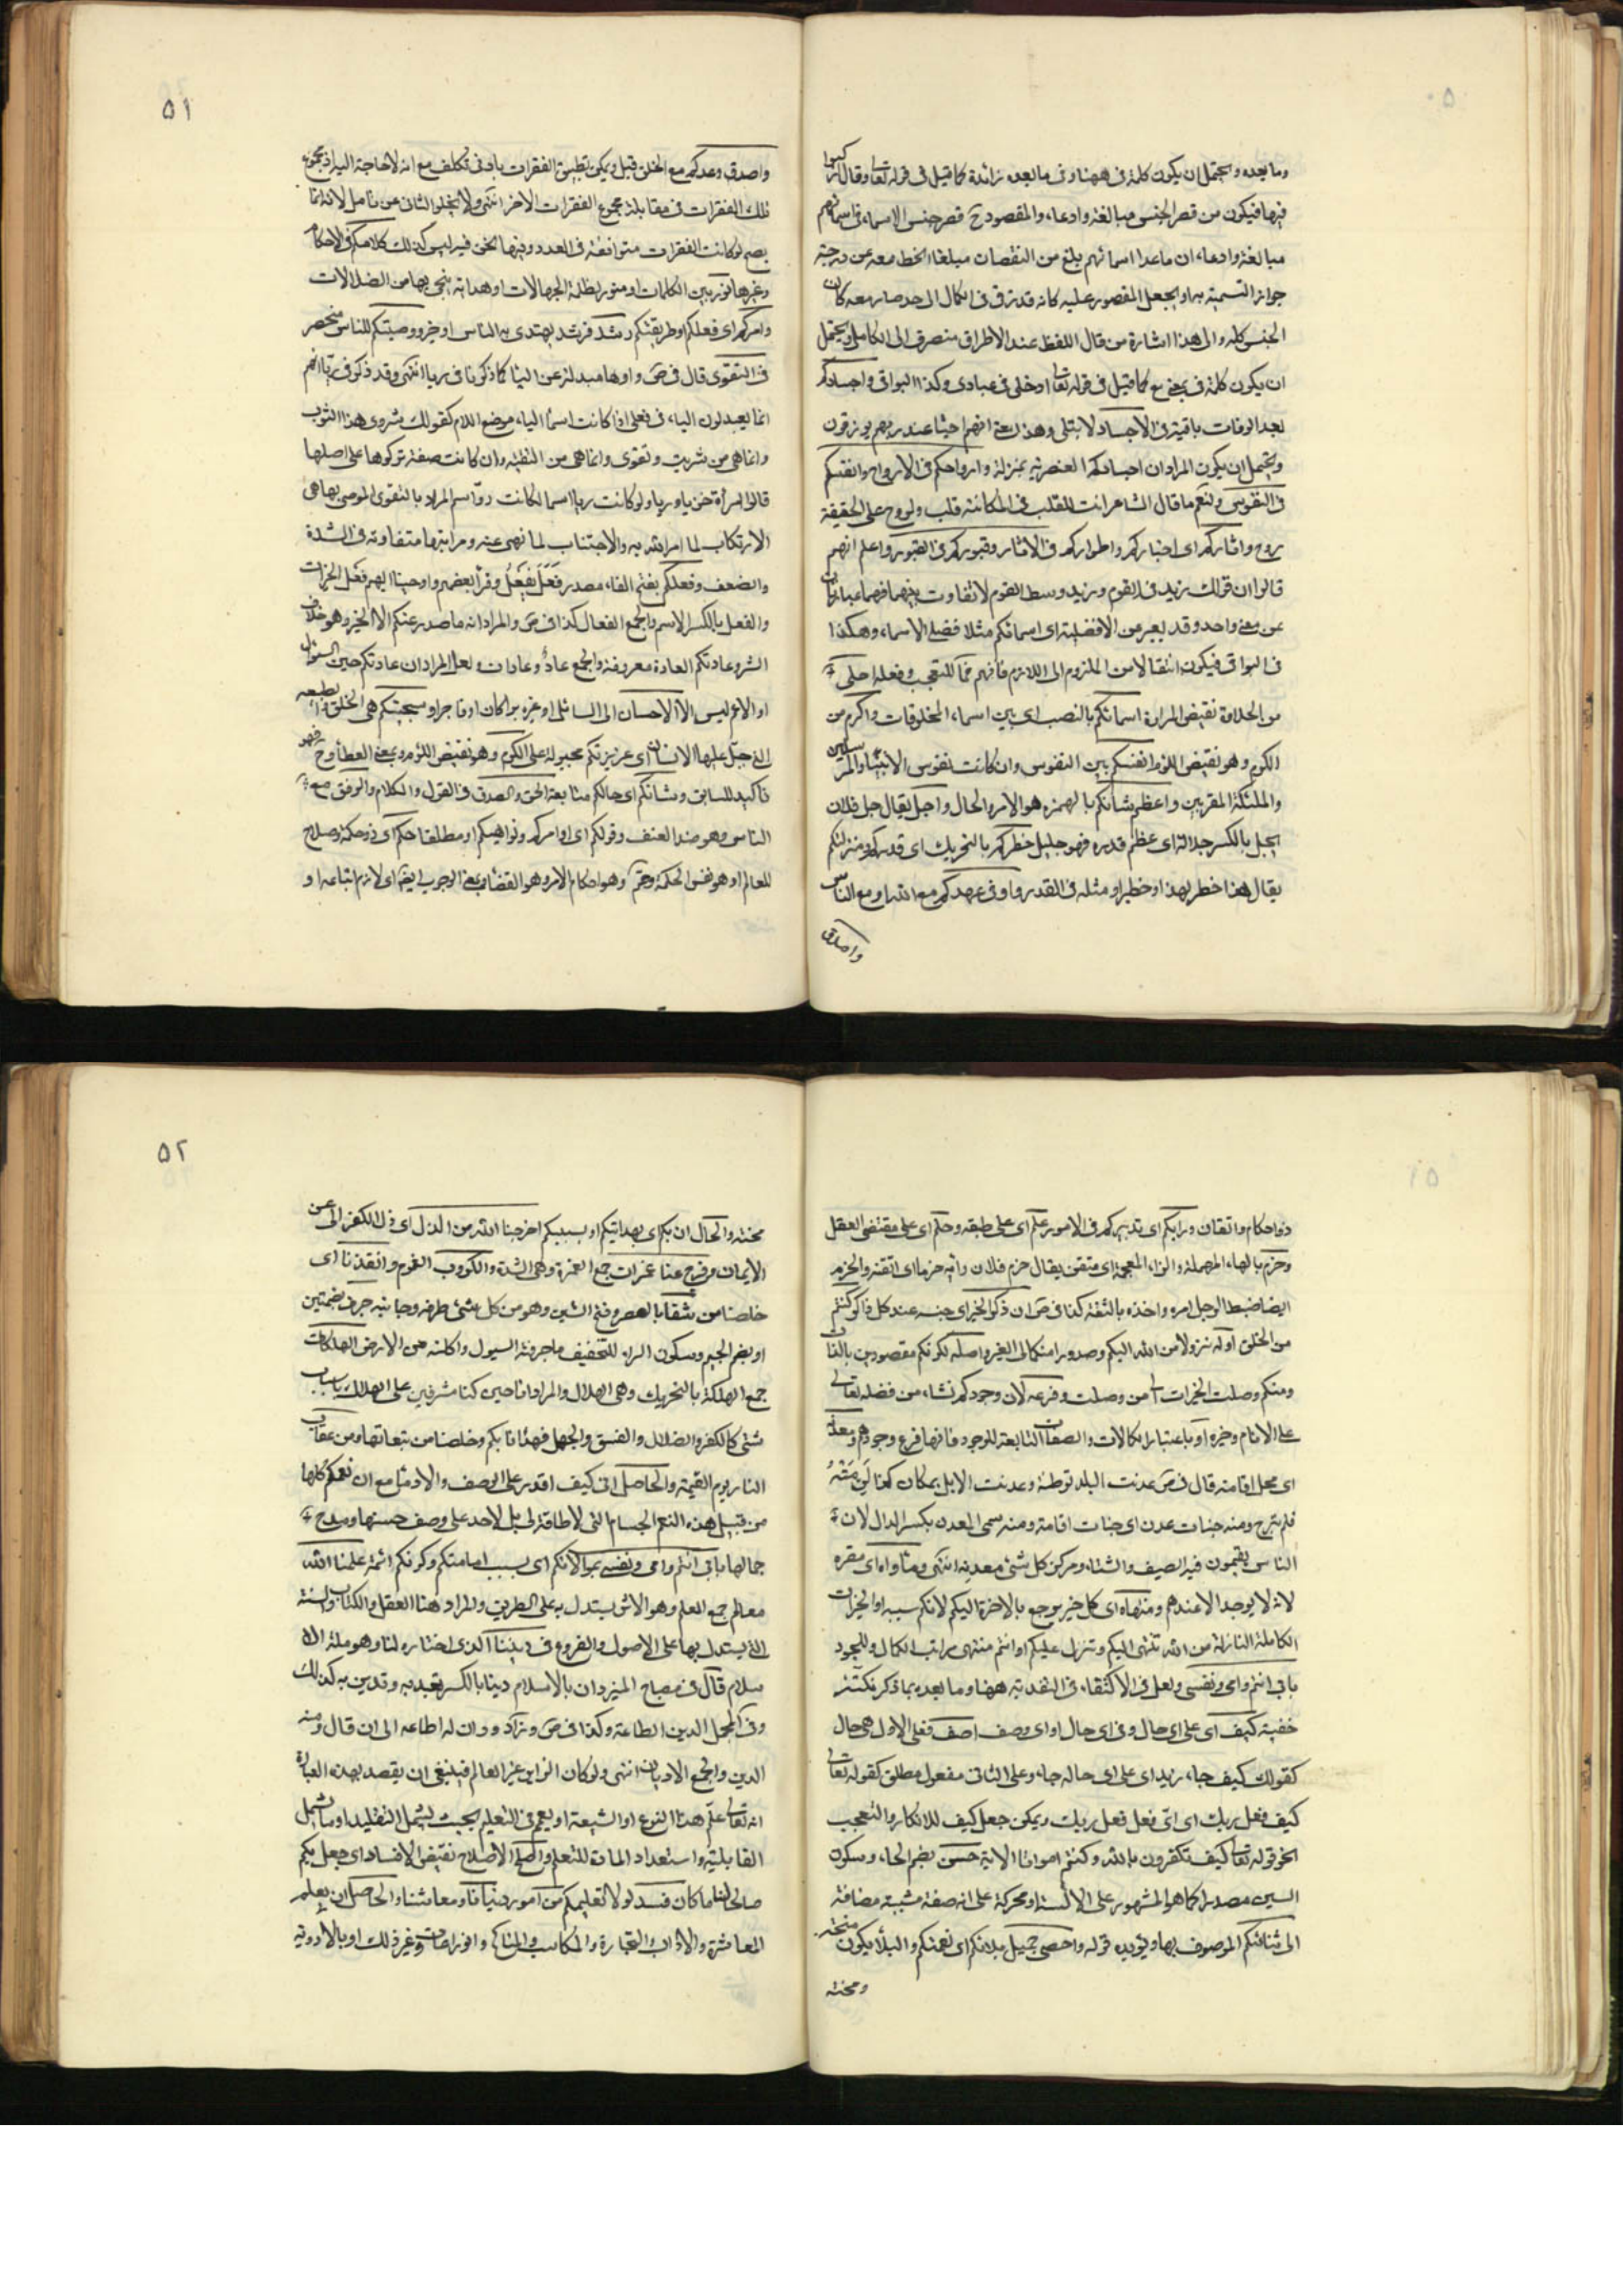 وما بعده ويحتمل ان يكون كلمة فى ههنا وفى ما بعده زائدة كما قيل فى قوله تعالى وقال اركبوا
فيها فيكون من قصر الجنس مبالغة وادعاء والمقصود ح قصر جنس الاسماء فى اسمائهم
مبالغة وادعاء ان ما عدا اسمائهم بلغ من النقصان مبلغا انحط معه عن درجة
جواز التسمية به او بجعل المقصور عليه كانه قد ترقى فى الكمال الى حد صار معه كان
الجنس كله والى هذا اشارة من قال اللفظ عند الاطراق منصرف الى الكامل ويحتمل
ان يكون كلمة فى بمعنى مع كما قيل فى قوله تعالى ادخلى فى عبادى وكذا البواقى واجسادكم
بعد الوفات باقية فى الاجساد لا تبتلى وهذا معنى انهم احياء عند ربهم يرزقون
ويحتمل ان يكون المراد ان اجسادكم العنصرية بمنزلة وارواحكم فى الارواح وانفسكم
فى النفوس ولنعم ما قال الشاعر انت للقلب فى المكانة قلب ولروح على الحقيقة
روح واثاركم اى اخباركم واطواركم فى الاثار وقبوركم فى القبور واعلم انهم
قالوا ان قولك زيد فى القوم وزيد وسط القوم لا تفاوت بينهما فهما عبارتان
عن معنى واحد وقد يعبر من الافضلية اى اسمائكم مثلا فضلى الاسماء وهكذا
فى البواقى فيكون انتقالا من الملزوم الى اللازم فافهم فما للتعجب وفعله احلى
من الحلاوة نقيض المرارة اسمائكم بالنصب اى بين اسماء المخلوقات واكرم من
الكرم وهو نقيض اللؤم انفسكم بين النفوس وان كانت نفوس الانبياء والمرسلين
والملئكة المقربين واعظم شانكم بالهمزه هو الامر والحال واجل يقال جل فلان
يجل بالكسر جلالة اى عظم قدره فهو جليل خطركم بالتحريك اى قدركم ومنزلتكم
يقال هذا خطر لهذا وخطير او مثله فى القدر واوفى عهدكم مع الله او مع الناس
واصدق
٥١
واصدق وعدكم مع الخلق قيل ويمكن تطبيق الفقرات بادنى تكلف مع انه لا حاجة اليه اذ مجموع
تلك الفقرات فى مقابلة مجموع الفقرات الاخر انتهى ولا يخلو الثانى من تامل لانه انما
يصح لو كانت الفقرات متوافقة فى العدد وفيما نحن فيه ليس كذلك كلامكم فى الاحكام
وغيرها نور بين الكلمات او منور لظلمة الجهالات او هداية ينجى بها من الضلالات
وامركم اى فعلكم او طريقتكم رشد فرشد يهتدى به الناس او خير ووصيتكم للناس منحصر
فى التقوى قال فى ص واوها مبدلة عن الياء كما ذكرنا فى ريا انتهى وقد ذكر فى ريا انهم
انما يبدلون الياء فى فعلى اذا كانت اسما الياء موضع اللام كقولك شروى هذا الثوب
وانما هى من شريت وتقوى وانما هى من التقية وان كانت صفة تركوها على اصلها
قالوا امرأة خزيا وريا ولو كانت ريا اسما لكانت روّا ثم المراد بالتقوى الموصى بها هى
الارتكاب لما امر الله به والاجتناب لما نهى عنه ومراتبها متفاوته فى الشدة
والضعف وفعلكم بفتح الفاء مصدر فَعَلَ يَفْعَلُ وقرأ بعضهم واوحينا اليهم فعل الخيرات
والفعل بالكسر الاسم والجمع الفعال كذا فى ص والمراد انه ما صدر عنكم الا الخير وهو خلاف
الشر وعادتكم العادة معروفة والجمع عادٌ وعادات ولعل المراد ان عادتكم حين السئوال
او الاعم ليس الا الاحسان الى السائل او غيره برا كان او فاجرا وسجيتكم هى الخلق والطبيعه
التى جبل عليها الانسان اى غريزتكم مجبولة على الكرم وهو نقيض اللؤم وبمعنى العطاء وح فهو
تاكيد للسابق وشانكم اى حالكم متابعة الحق والصدق فى القول والكلام والرفق مع
الناس وهو ضد العنف وقولكم اى اوامركم ونواهيكم او مطلقا حكم اى ذو حكمة وصلاح
للعالم او هو نفس الحكمة وحتم وهو احكام الامر وهو القضاء بمعنى الوجوب ايضا اى لازم اتباعه او
ذو احكام واتقان ورايكم اى تدبيركم فى الامور علم اى على طبقه وحلم اى على مقتضى العقل
وحزم بالهاء المهملة والزاء المعجمة اى متقن يقال حزم فلان رايه حزما اى اتقنه والحزم
ايضا ضبط الرجل امره واخذه بالثقة كذا فى ص ان ذكر الخير اى جنسه عند كل ذاكر كنتم
من الخلق اوله نزولا من الله اليكم وصدورا منكم الى الغير واصله لكونكم مقصودين بالذات
ومنكم وصلت الخيرات الى من وصلت وفرعه لان وجودكم نشاء من فضله تعالى
على الانام وخيره او باعتبار الكالات والصفات التابعة للوجود فانها فرع وجودهم ومعدنه
اى محل اقامته قال فى ص عدنت البلد توطنته وعدنت الابل بمكان كذا لَزِمَتْهُ
فلم تبرح ومنه جنات عدن اى جنات اقامة ومنه سمى المعدن بكسر الدال لان
الناس يقيمون فيه الصيف والشتاء ومركز كل شئ معدنه انتهى ومأواه اى مقره
لانه لا يوجد الا عندهم ومنتهاه اى كل خير يرجع بالاخرة اليكم لانكم سببه او الخيرات
الكاملة النازلة من الله تنتهى اليكم وتنزل عليكم او انتم منتهى مراتب الكمال والجود
بابى انتم وامى ونفسى ولعل فى الاكتفاء فى التفدية ههنا وما بعده بما ذكر نكتة
خفية كيف اى على اى حال وفى اى حال او اى وصف اصف فعلى الاول هى حال
كقولك كيف جاء زيد اى على اى حاله جاء وعلى الثانى مفعول مطلق كقوله تعالى
كيف فعل ربك اى اىّ فعل فعل ربك ويمكن جعل كيف للانكار والتعجب
نحو قوله تعالى كيف تكفرون بالله وكنتم امواتا الاية حسن بضم الحاء وسكون
السين مصدرا كما هو المشهور على الالسنة او محركة على انه صفة مشبهة مضافة
الى ثنائكم الموصوف بها ويؤيده قوله واحصى جميل بلائكم اى نعمتكم والبلاء يكون منحة
ومحنته
٥٢
محنته والحال ان بكم اى بهدايتكم او بسببكم اخرجنا الله من الذل اى ذل الكفر الى عز
الايمان وفرج عنا غمرات جمع الغمرة وهى الشدة والكروب الغموم وانقذنا اى
خلصنا من شفا بالقصر وفتح الشين وهو من كل شئ طرفه وجانبه جرف بضمتين
او بضم الجيم وسكون الراء للتخفيف ما جرفته السيول واكلته من الارض الهلكات
جمع الهلكة بالتحريك وهى الهلاك والمراد انا حين كنا مشرفين على الهلاك باسباب
شتى كالكفر والضلال والفسق والجهل فهدانا بكم وخلصنا من تبعاتها ومن عقاب
النار يوم القيمة والحاصل انى كيف اقدر على الوصف والاد مثل مع ان نعمكم كلها
من قبيل هذه النعم الجسام التى لا طاقة لى بل لاحد على وصف حسنها ومدح
جمالها بابى انتم وامى ونفسى بموالاتكم اى بسبب امامتكم وكونكم ائمة علمنا الله
معالم جمع العلم وهو الاثر يستدل به على الطريق والمراد هنا العقل والكتاب والسنة
التى يستدل بها على الاصول والفروع فى ديننا الذى اختاره لنا وهو ملة الا
سلام قال فى مصباح المنير دان بالاسلام دينا بالكسر تعبد به وتدين به كذلك
وفى المجمل الدين الطاعة وكذا فى ص وزاد ودان له اطاعه الى ان قال ومنه
الدين والجمع الاديان انتهى ولو كان الزاير غير العالم فينبغى ان يقصد بهذه العبارة
انه تعالى علّم هذا النوع او الشيعة او يعمم فى التعليم بحيث يشمل التقليد او ما يشمل
القابلية واستعداد المادة للتعلم واصلح الاصلاح نقيض الافساد اى جعل بكم
صالحا لنا ما كان فسد لولا تعليمكم من امور دنيانا ومعاشنا والحاصل ان يعلم
المعاشرة والاداب والتجارة والمكاسب والمناكح والزراعات وغير ذلك او بالادوية